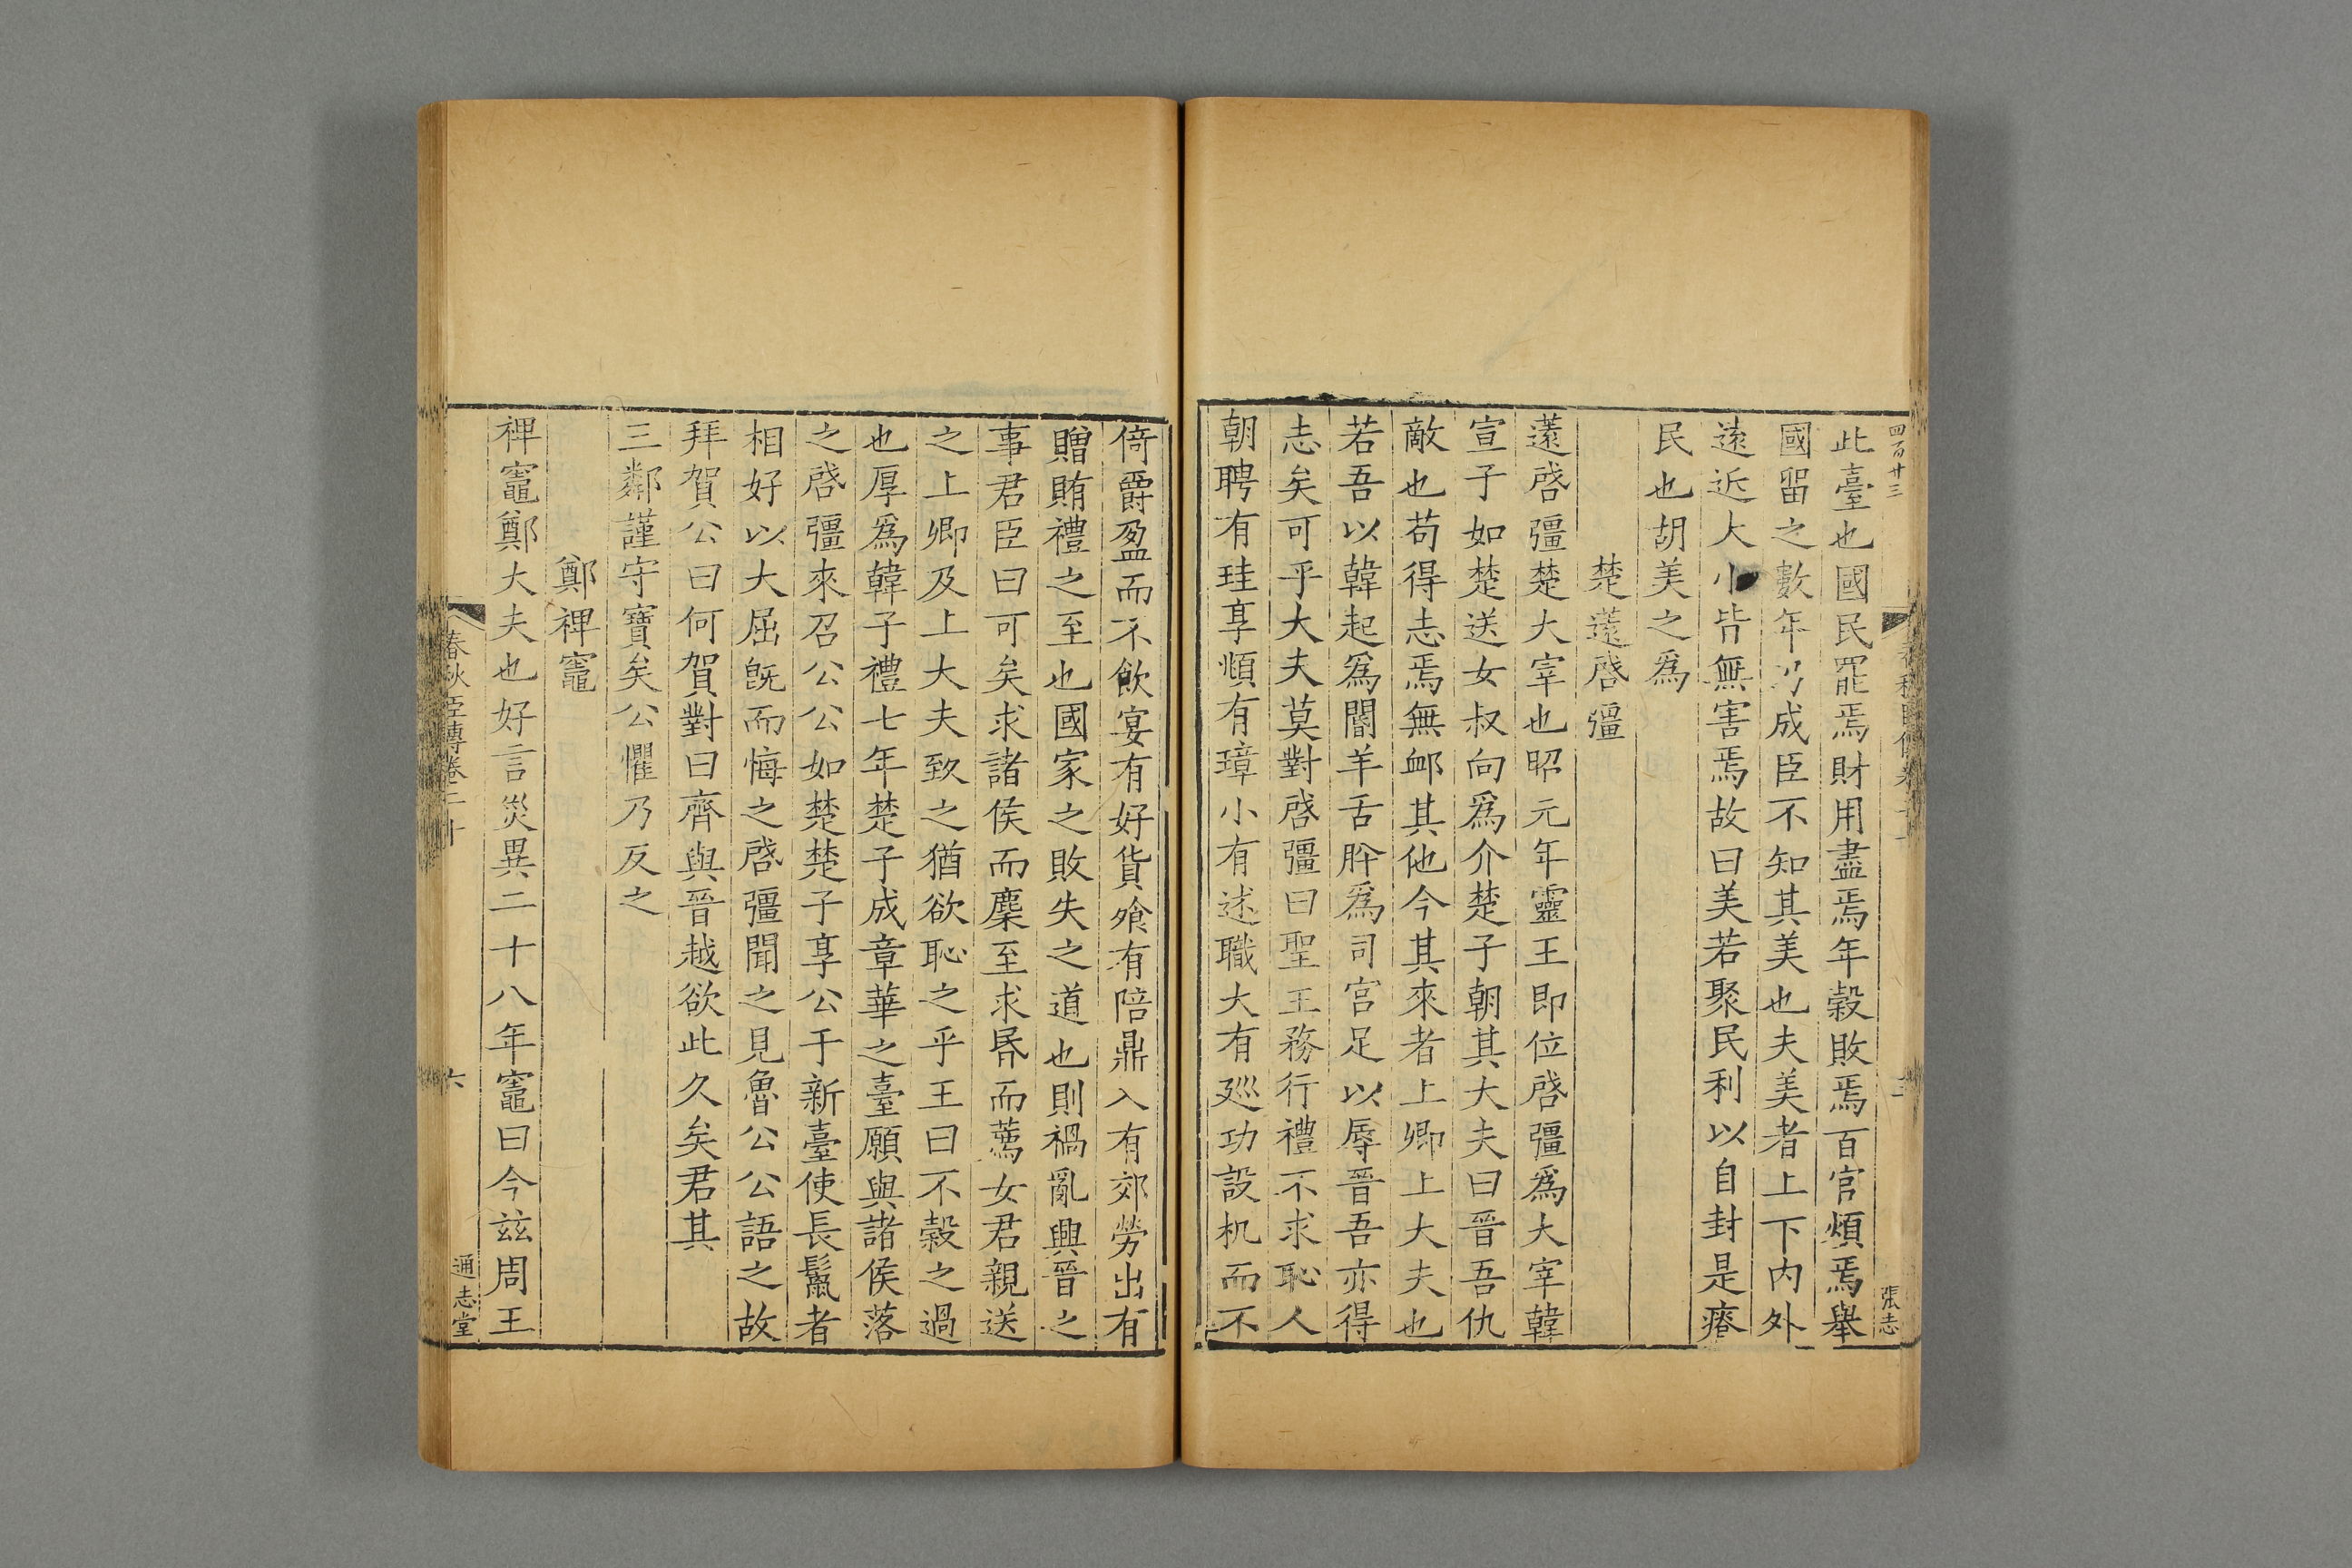 四百廿三
張志
此臺也國民罷焉財用盡焉年穀敗焉百官煩焉舉
國留之數年乃成臣不知其美也夫美者上下内外
遠近大小皆無害焉故曰美若聚民利以自封是瘠
民也胡美之爲
楚薳啓彊
薳啓彊楚大宰也昭元年靈王即位啓彊爲大宰韓
宣子如楚送女叔向爲介楚子朝其大夫曰晉吾仇
敵也苟得志焉無䘏其他今其來者上卿上大夫也
若吾以韓起爲閽羊舌肸爲司宮足以辱晉吾亦得
志矣可乎大夫莫對啓彊曰聖王務行禮不求恥人
朝聘有珪享頫有璋小有述職大有廵功設机而不
倚爵盈而不飲宴有好貨飱有陪鼎入有郊勞出有
贈賄禮之至也國家之敗失之道也則禍亂興晉之
事君臣曰可矣求諸侯而麇至求昏而薦女君親送
之上卿及上大夫致之猶欲恥之乎王曰不穀之過
也厚爲韓子禮七年楚子成章華之臺願與諸侯落
之啓彊來召公公如楚楚子享公于新臺使長鬛者
相好以大屈旣而悔之啓彊聞之見魯公公語之故
拜賀公曰何賀對曰齊與晉越欲此久矣君其
三鄰謹守寶矣公懼乃反之
鄭裨竈
裨竈鄭大夫也好言災異二十八年竈曰今兹周王
春秋臣傳卷二十
六
通志堂